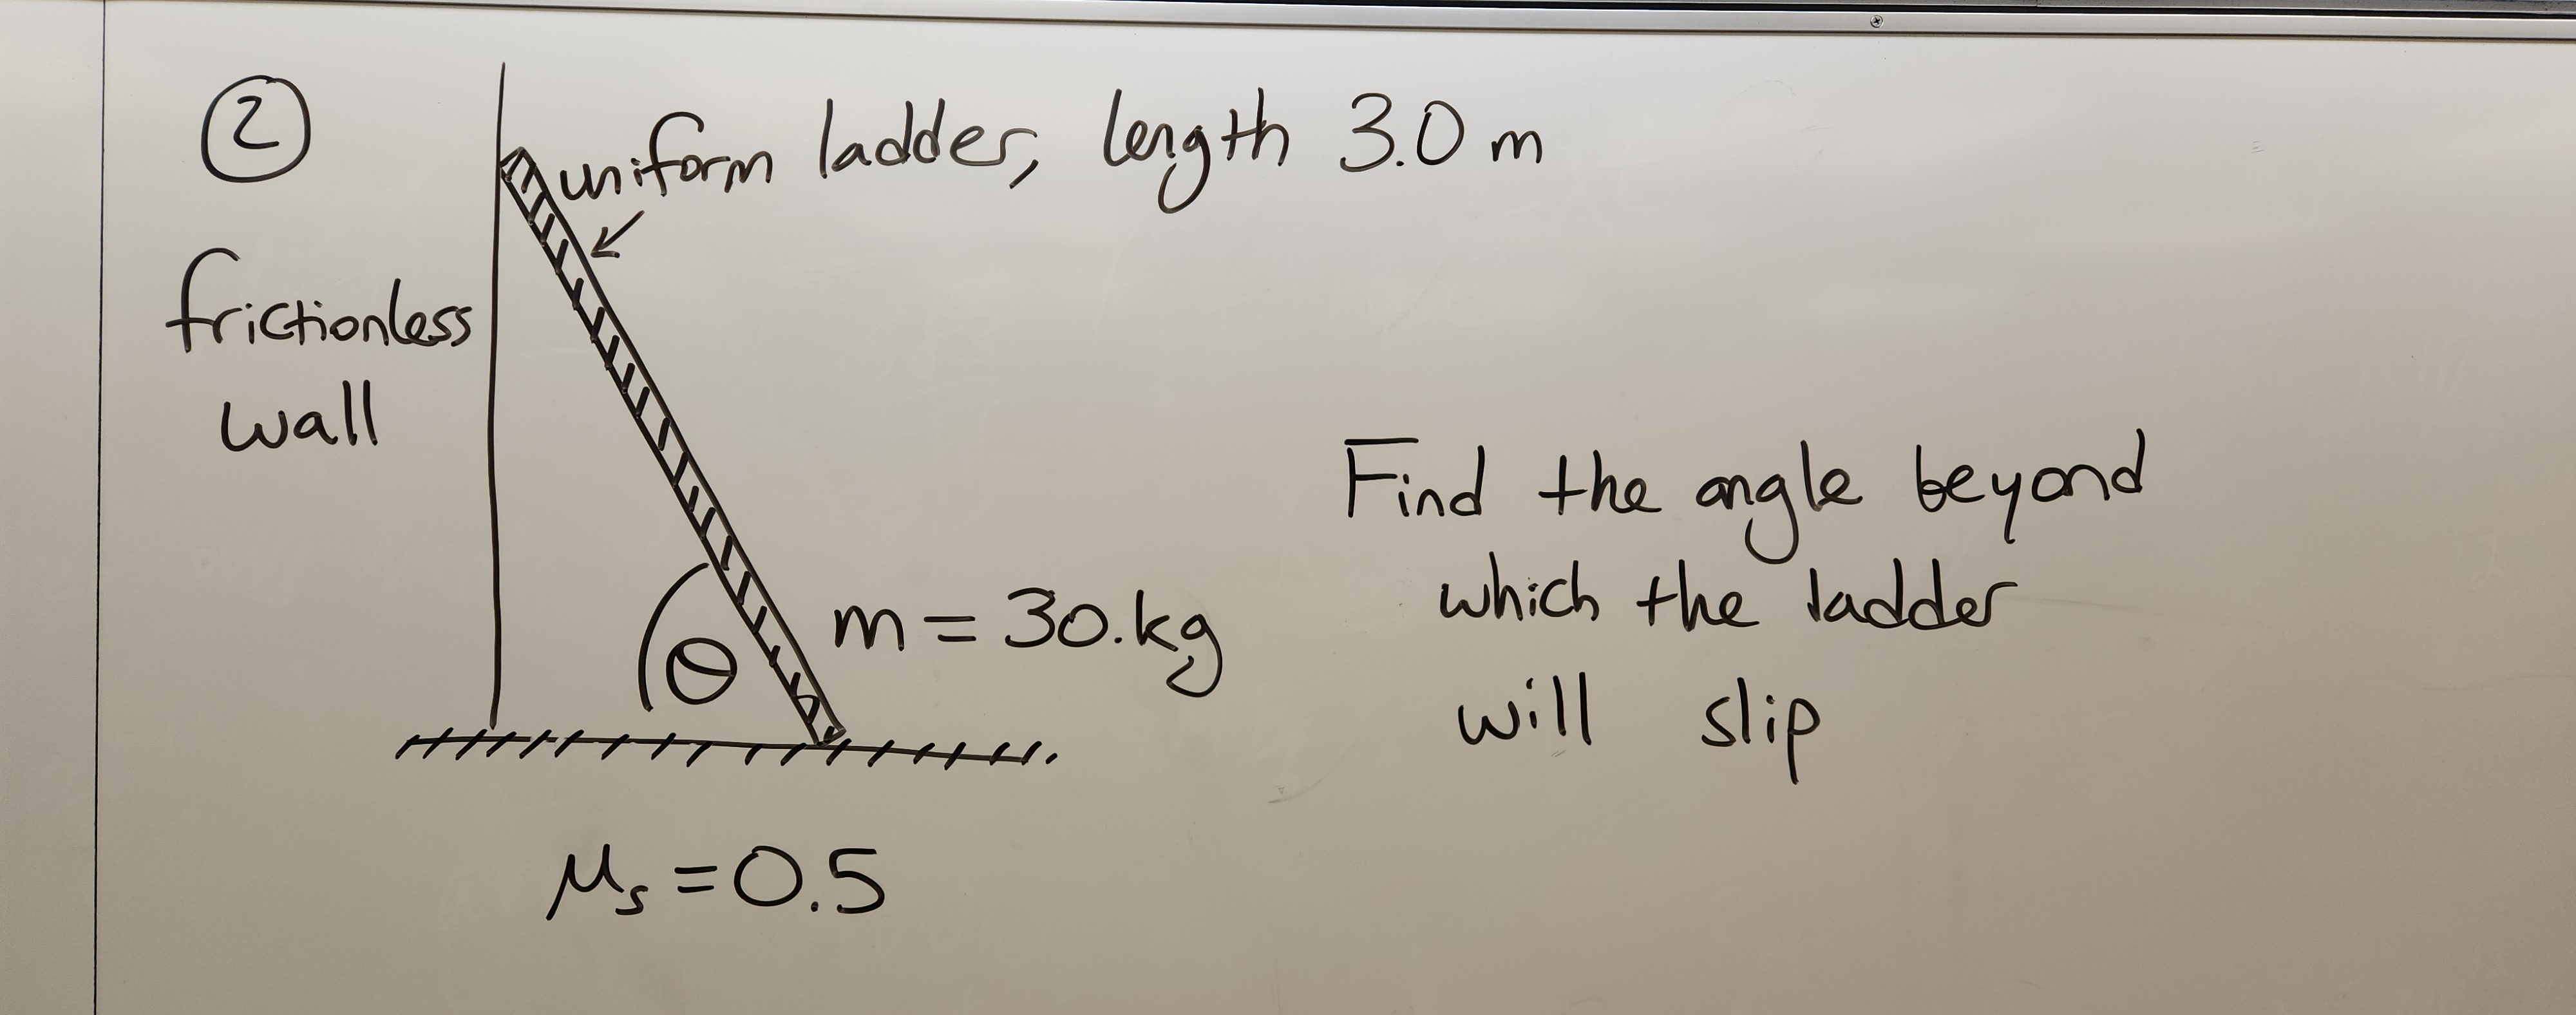 ②
uniform ladder, length 3.0 m
frictionless
wall
Find the angle beyond
which the ladder
will slip
m = 30. kg
θ
μₛ = 0.5